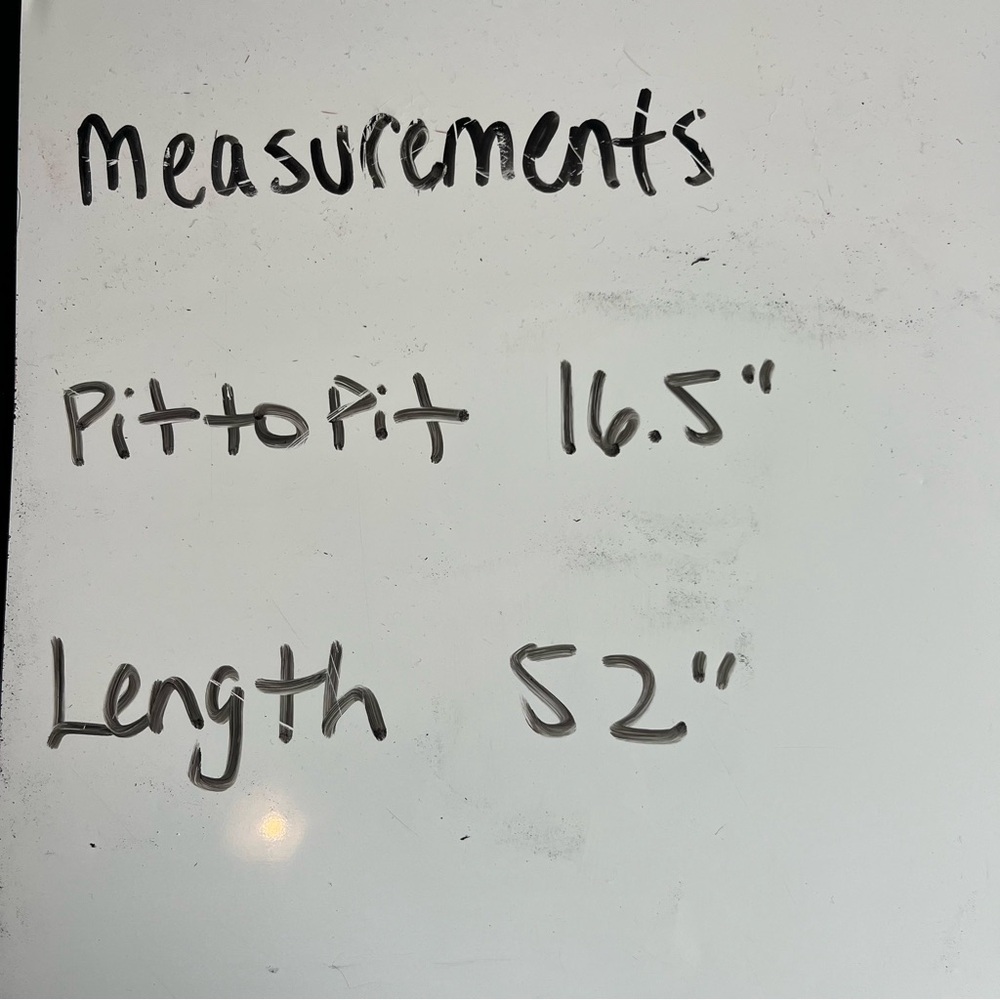 Measurements
Pit to Pit 16.5"
Length 52"